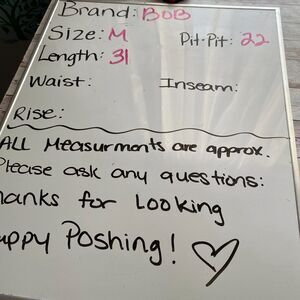 Brand: BOB
Size: M Pit-Pit: 22
Length: 31
Waist: Inseam:
Rise:
ALL Measurments are approx.
Please ask any questions:
hanks for Looking
appy Poshing! ♡